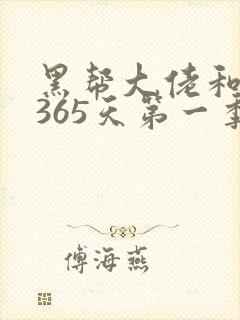 黑帮大佬和
365天第一季
傅海燕